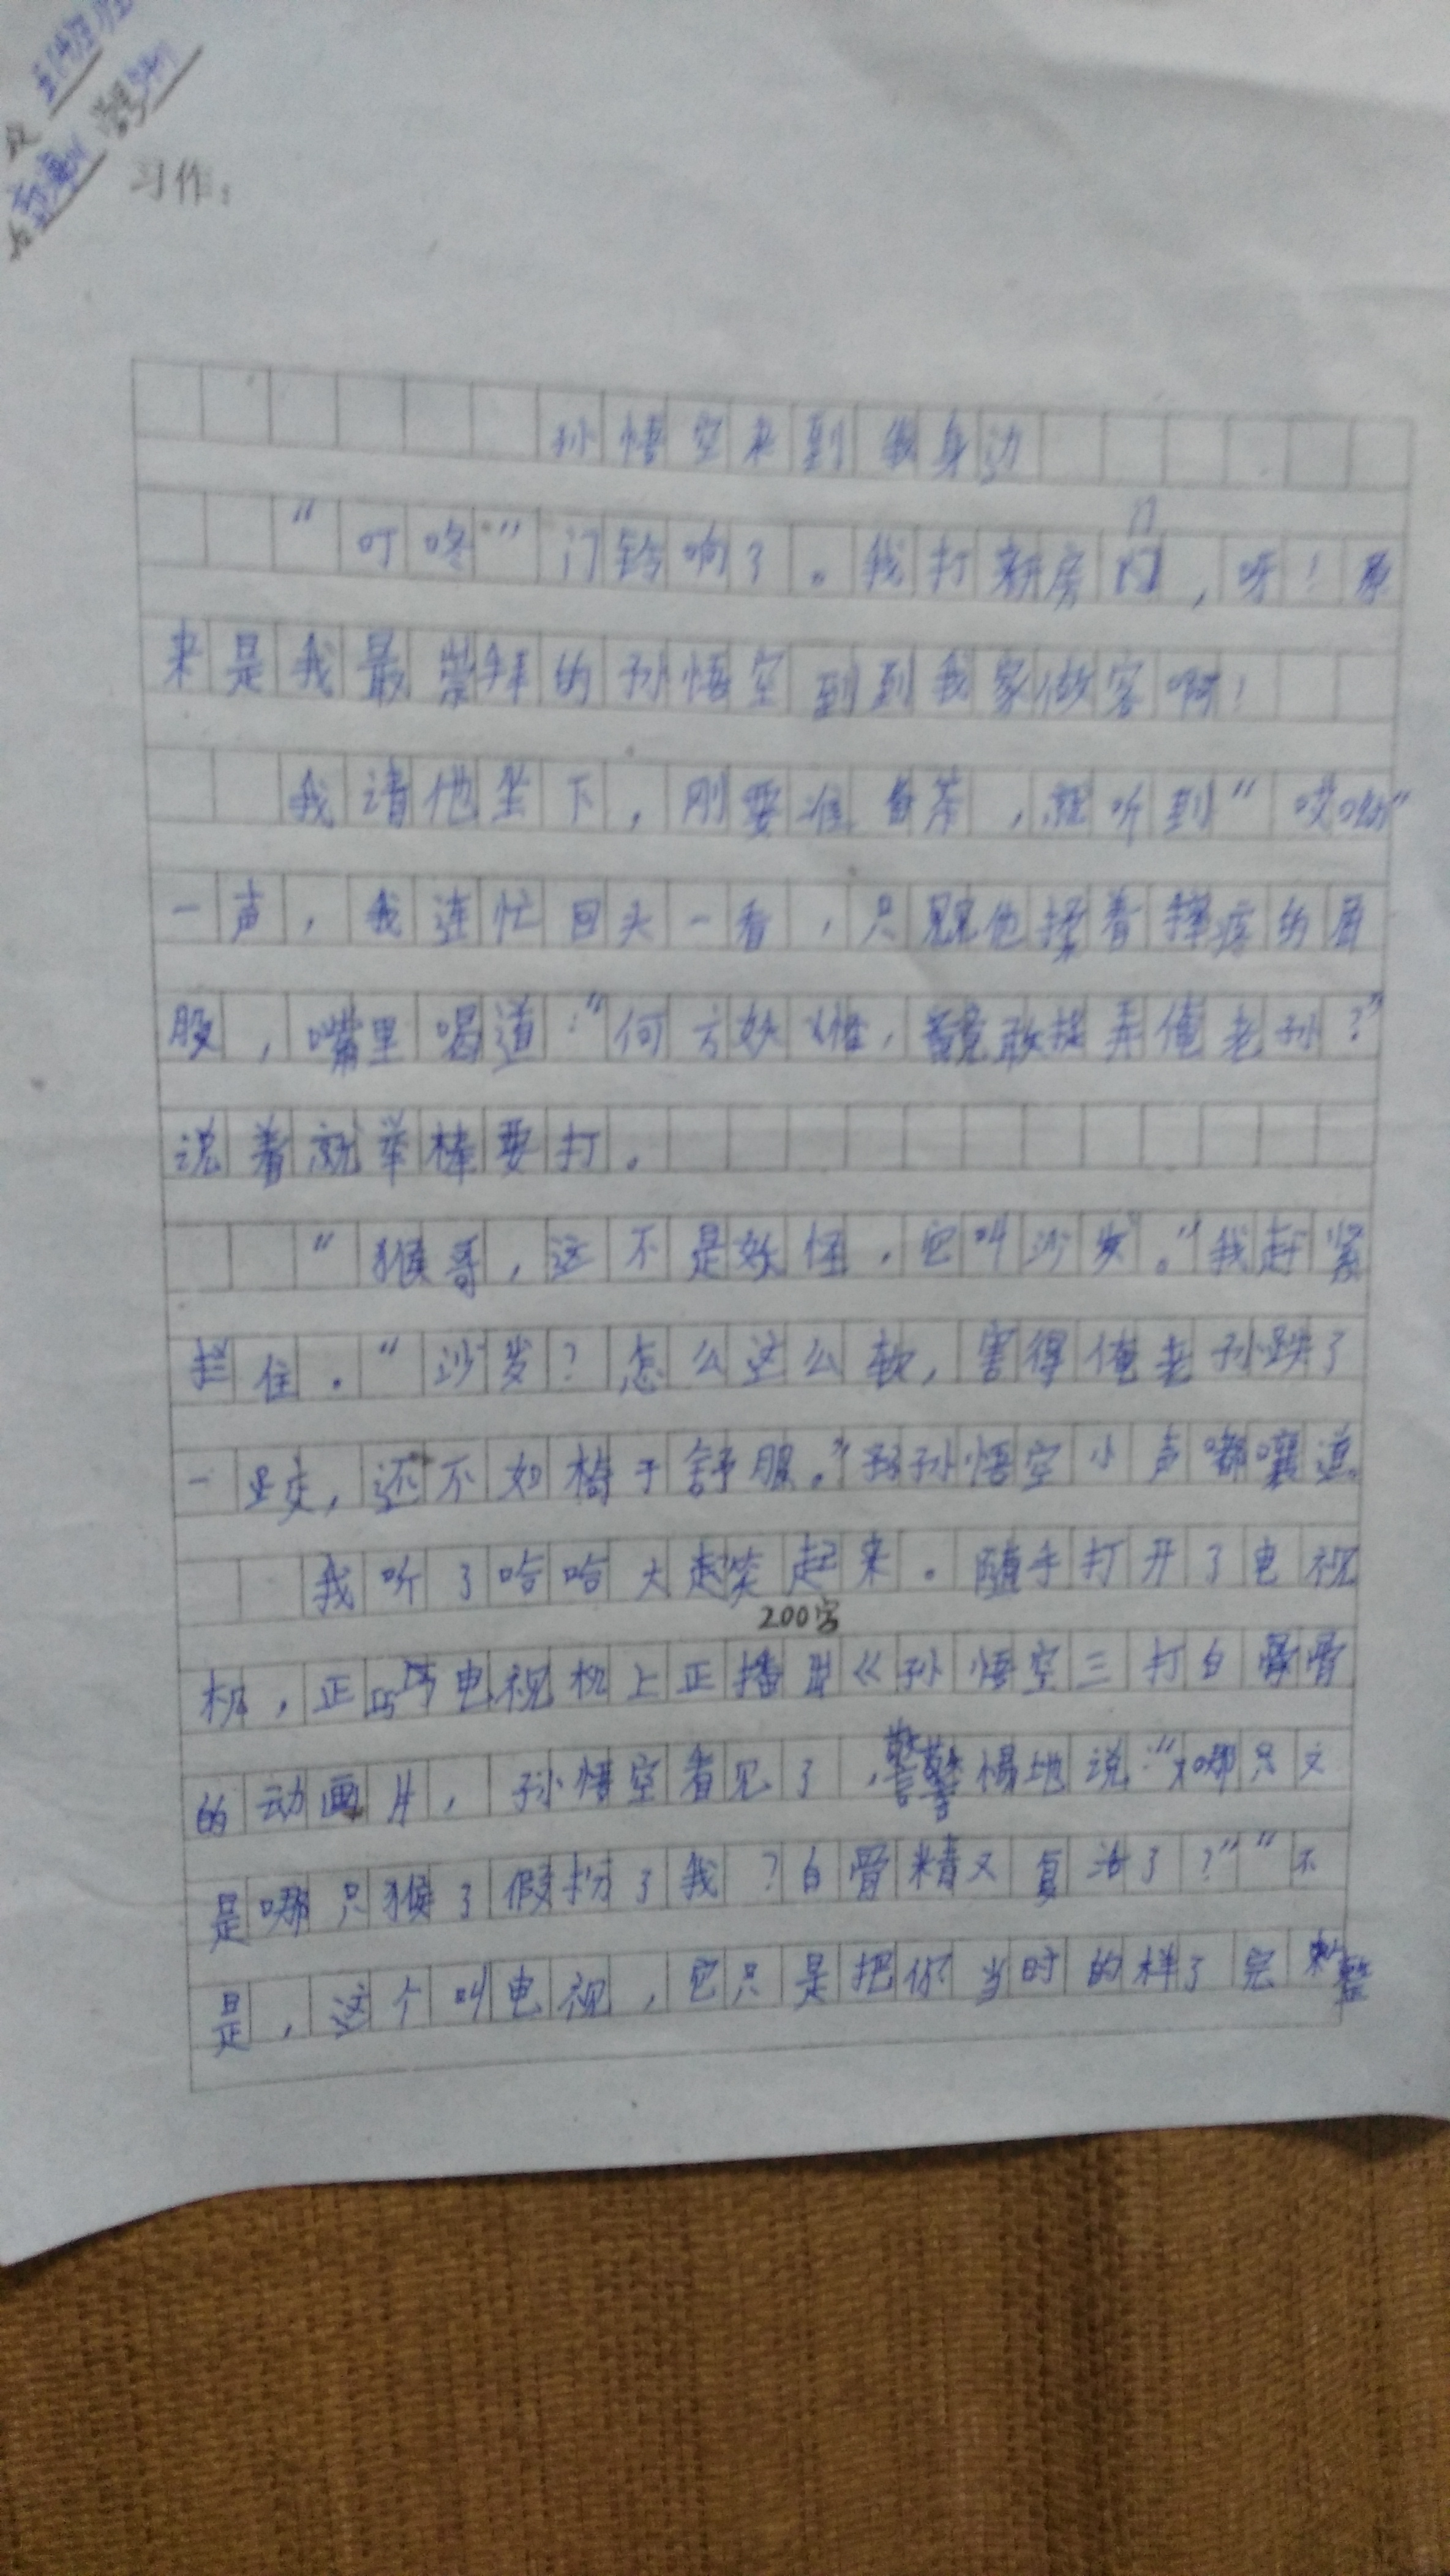 习作：
孙悟空来到我身边
“叮咚”门铃响了。我打开房门，呀！原
来是我最崇拜的孙悟空到到我家做客啊！
我请他坐下，刚要准备茶，就听到“哎哟”
一声，我连忙回头一看，只见他揉着摔疼的屁
股，嘴里喝道：“何方妖怪，竟敢捉弄俺老孙？”
说着就举棒要打。
“猴哥，这不是妖怪，它叫沙发。”我赶紧
拦住。“沙发？怎么这么软，害得俺老孙跌了
一跤，还不如椅子舒服。”孙悟空小声嘟囔道。
我听了哈哈大笑起来。随手打开了电视
200字
机，正巧电视机上正播出《孙悟空三打白骨
的动画片，孙悟空看见了，警惕地说：“哪只又
是哪只猴子假扮了我？白骨精又复活了？”“不
是，这个叫电视，它只是把你当时的样子完整